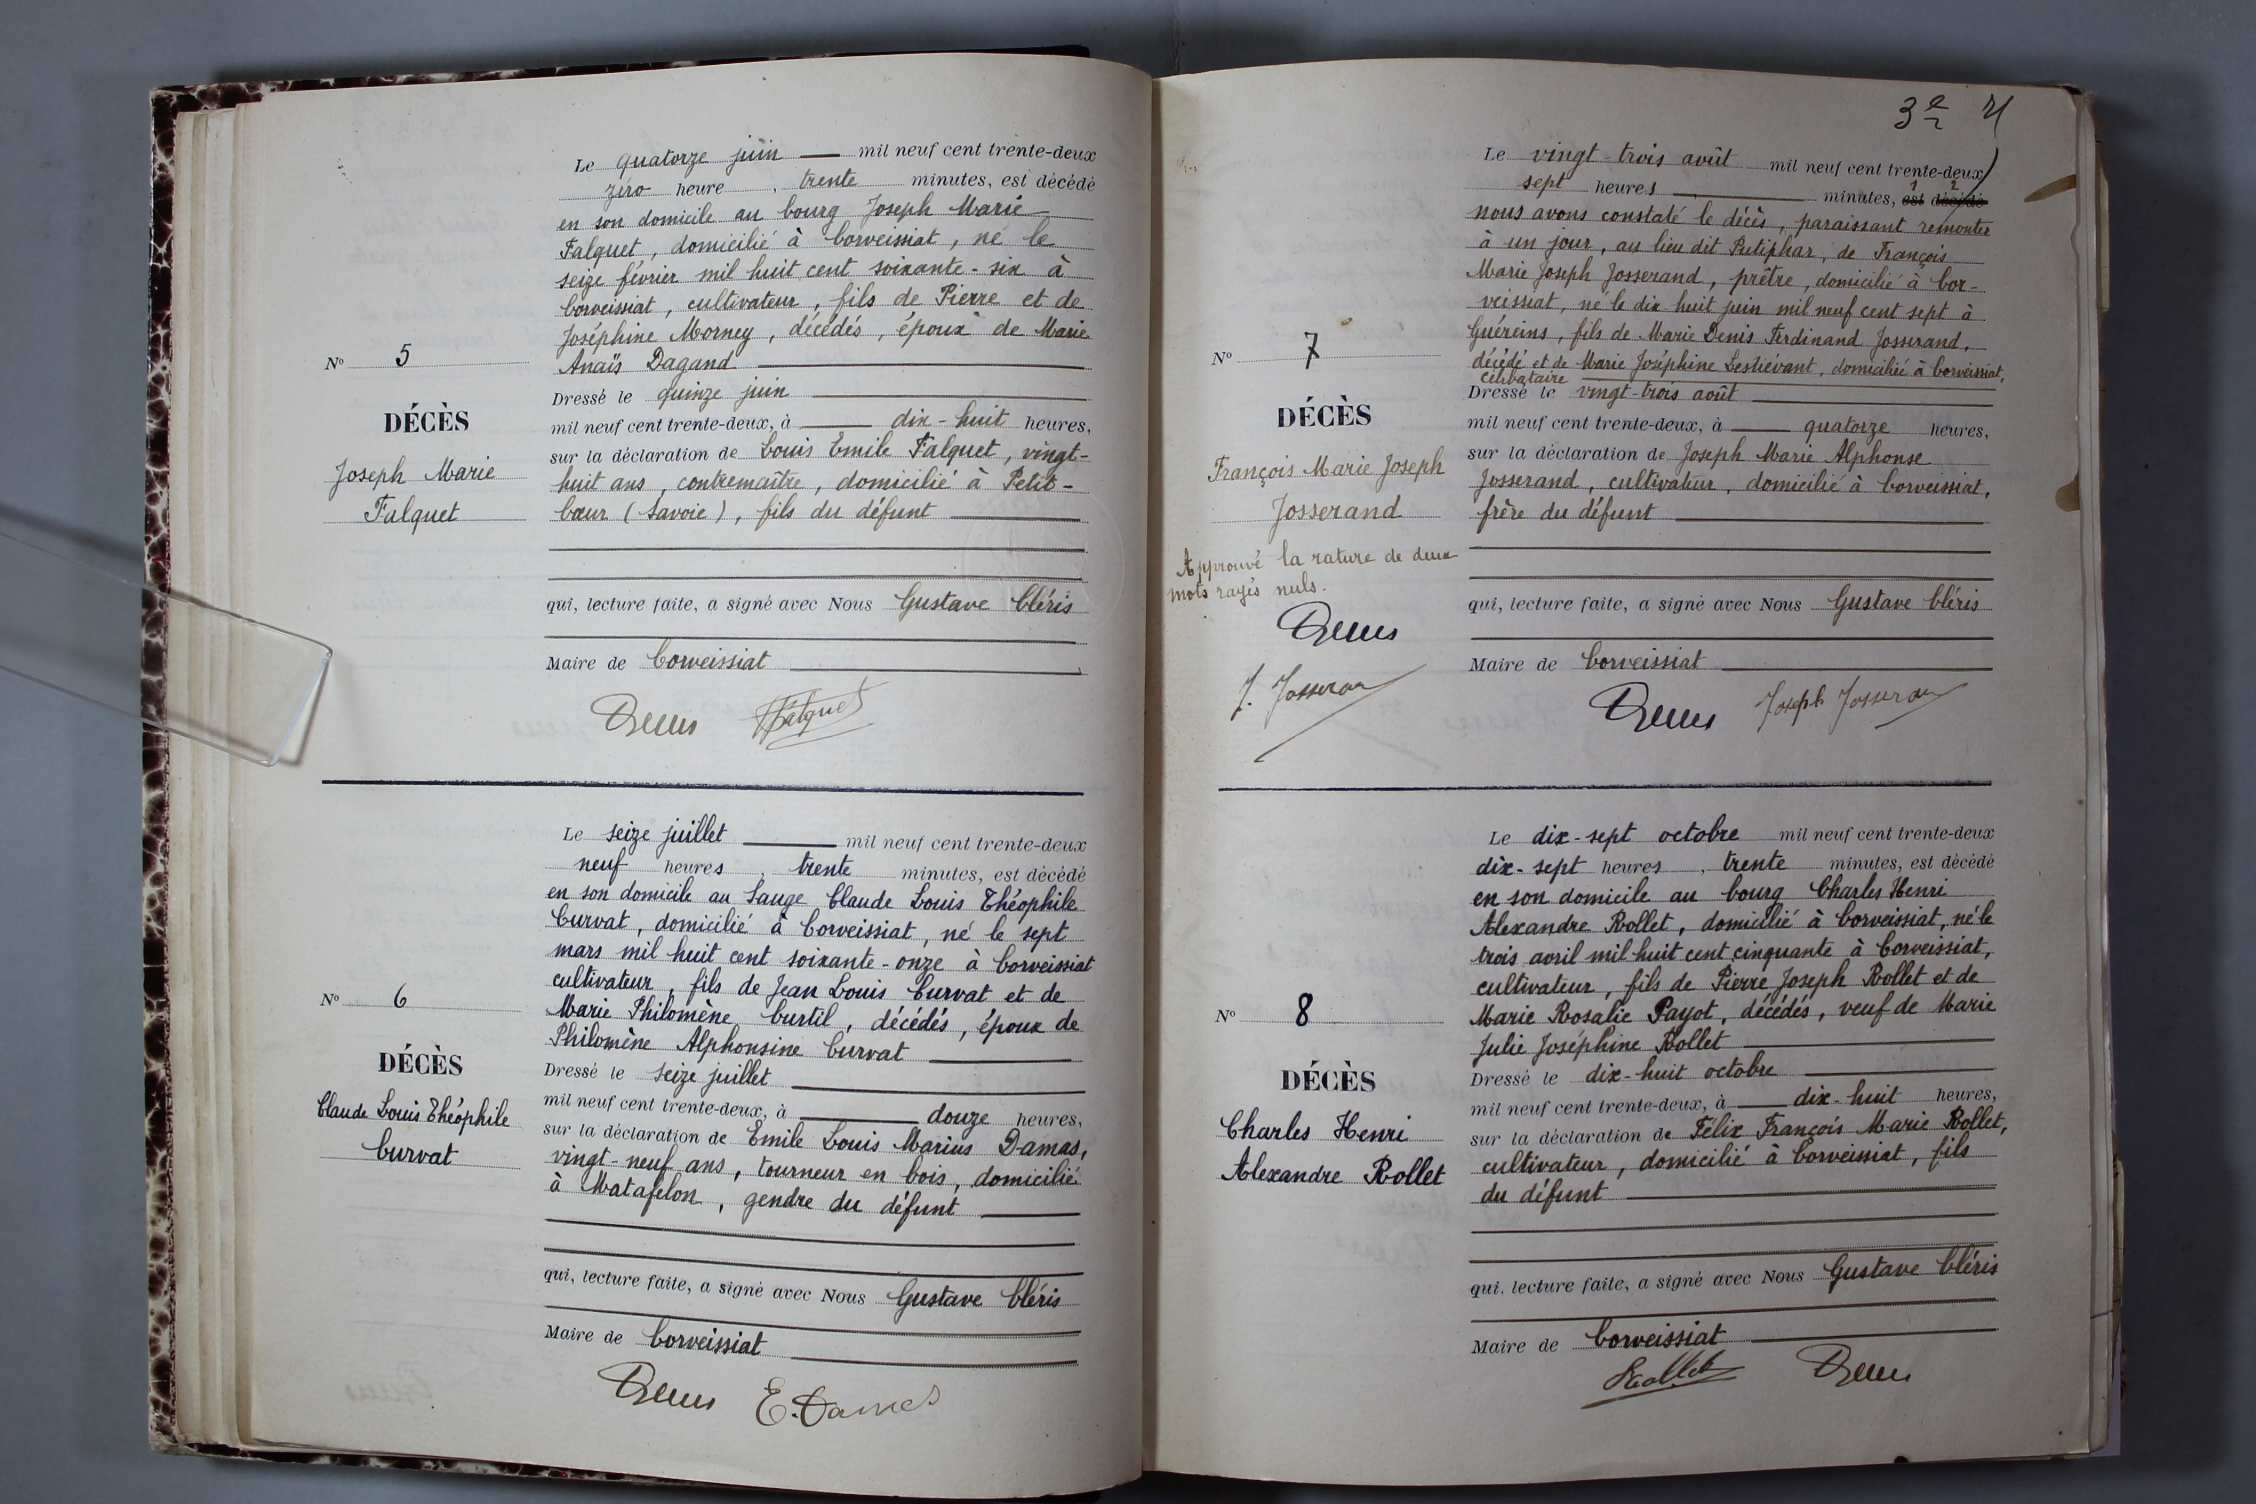 Le quatorze juin mil neuf cent trente-deux
zéro heure, trente minutes, est décédé
en son domicile au bourg Joseph Marie
Falquet, domicilié à Corveissiat, né le
seize février mil huit cent soixante-six à
Corveissiat, cultivateur, fils de Pierre et de
Joséphine Morney, décédés, époux de Marie
Anaïs Dagand
Nº 5
Dressé le quinze juin
DÉCÈS
mil neuf cent trente-deux, à dix-huit heures,
sur la déclaration de Louis Emile Falquet, vingt-
Joseph Marie
huit ans, contremaître, domicilié à Petit-
Falquet
Cœur (Savoie), fils du défunt
qui, lecture faite, a signé avec Nous Gustave Cléris
Maire de Corveissiat
Falquet
Le seize juillet mil neuf cent trente-deux
neuf heures, trente minutes, est décédé
en son domicile au Sauge Claude Louis Théophile
Curvat, domicilié à Corveissiat, né le sept
mars mil huit cent soixante-onze à Corveissiat
cultivateur, fils de Jean Louis Curvat et de
Nº 6
Marie Philomène Curtil, décédés, époux de
Philomène Alphonsine Curvat
DÉCÈS
Dressé le seize juillet
mil neuf cent trente-deux, à douze heures,
Claude Louis Théophile
sur la déclaration de Emile Louis Marius Damas,
Curvat
vingt-neuf ans, tourneur en bois, domicilié
à Matafelon, gendre du défunt
qui, lecture faite, a signé avec Nous Gustave Cléris
Maire de Corveissiat
E. Damas
3e
Le vingt-trois août mil neuf cent trente-deux
sept heures minutes, est décédé
1 2
nous avons constaté le décès, paraissant remonter
à un jour, au lieu dit Putiphar, de François
Marie Joseph Josserand, prêtre, domicilié à Cor-
veissiat, né le dix huit juin mil neuf cent sept à
Guéreins, fils de Marie Denis Ferdinand Josserand,
Nº 7
décédé et de Marie Joséphine Lestiévant, domiciliée à Corveissiat,
célibataire
Dressé le vingt-trois août
DÉCÈS
mil neuf cent trente-deux, à quatorze heures,
sur la déclaration de Joseph Marie Alphonse
François Marie Joseph
Josserand, cultivateur, domicilié à Corveissiat,
Josserand
frère du défunt
Approuvé la rature de deux
mots rayés nuls.
qui, lecture faite, a signé avec Nous Gustave Cléris
Maire de Corveissiat
J. Josserand
Joseph Josserand
Le dix-sept octobre mil neuf cent trente-deux
dix-sept heures, trente minutes, est décédé
en son domicile au bourg Charles Henri
Alexandre Rollet, domicilié à Corveissiat, né le
trois avril mil huit cent cinquante à Corveissiat,
cultivateur, fils de Pierre Joseph Rollet et de
Nº 8
Marie Rosalie Payot, décédés, veuf de Marie
Julie Joséphine Rollet
DÉCÈS
Dressé le dix-huit octobre
mil neuf cent trente-deux, à dix-huit heures,
Charles Henri
sur la déclaration de Félix François Marie Rollet,
Alexandre Rollet
cultivateur, domicilié à Corveissiat, fils
du défunt
qui, lecture faite, a signé avec Nous Gustave Cléris
Maire de Corveissiat
Rollet